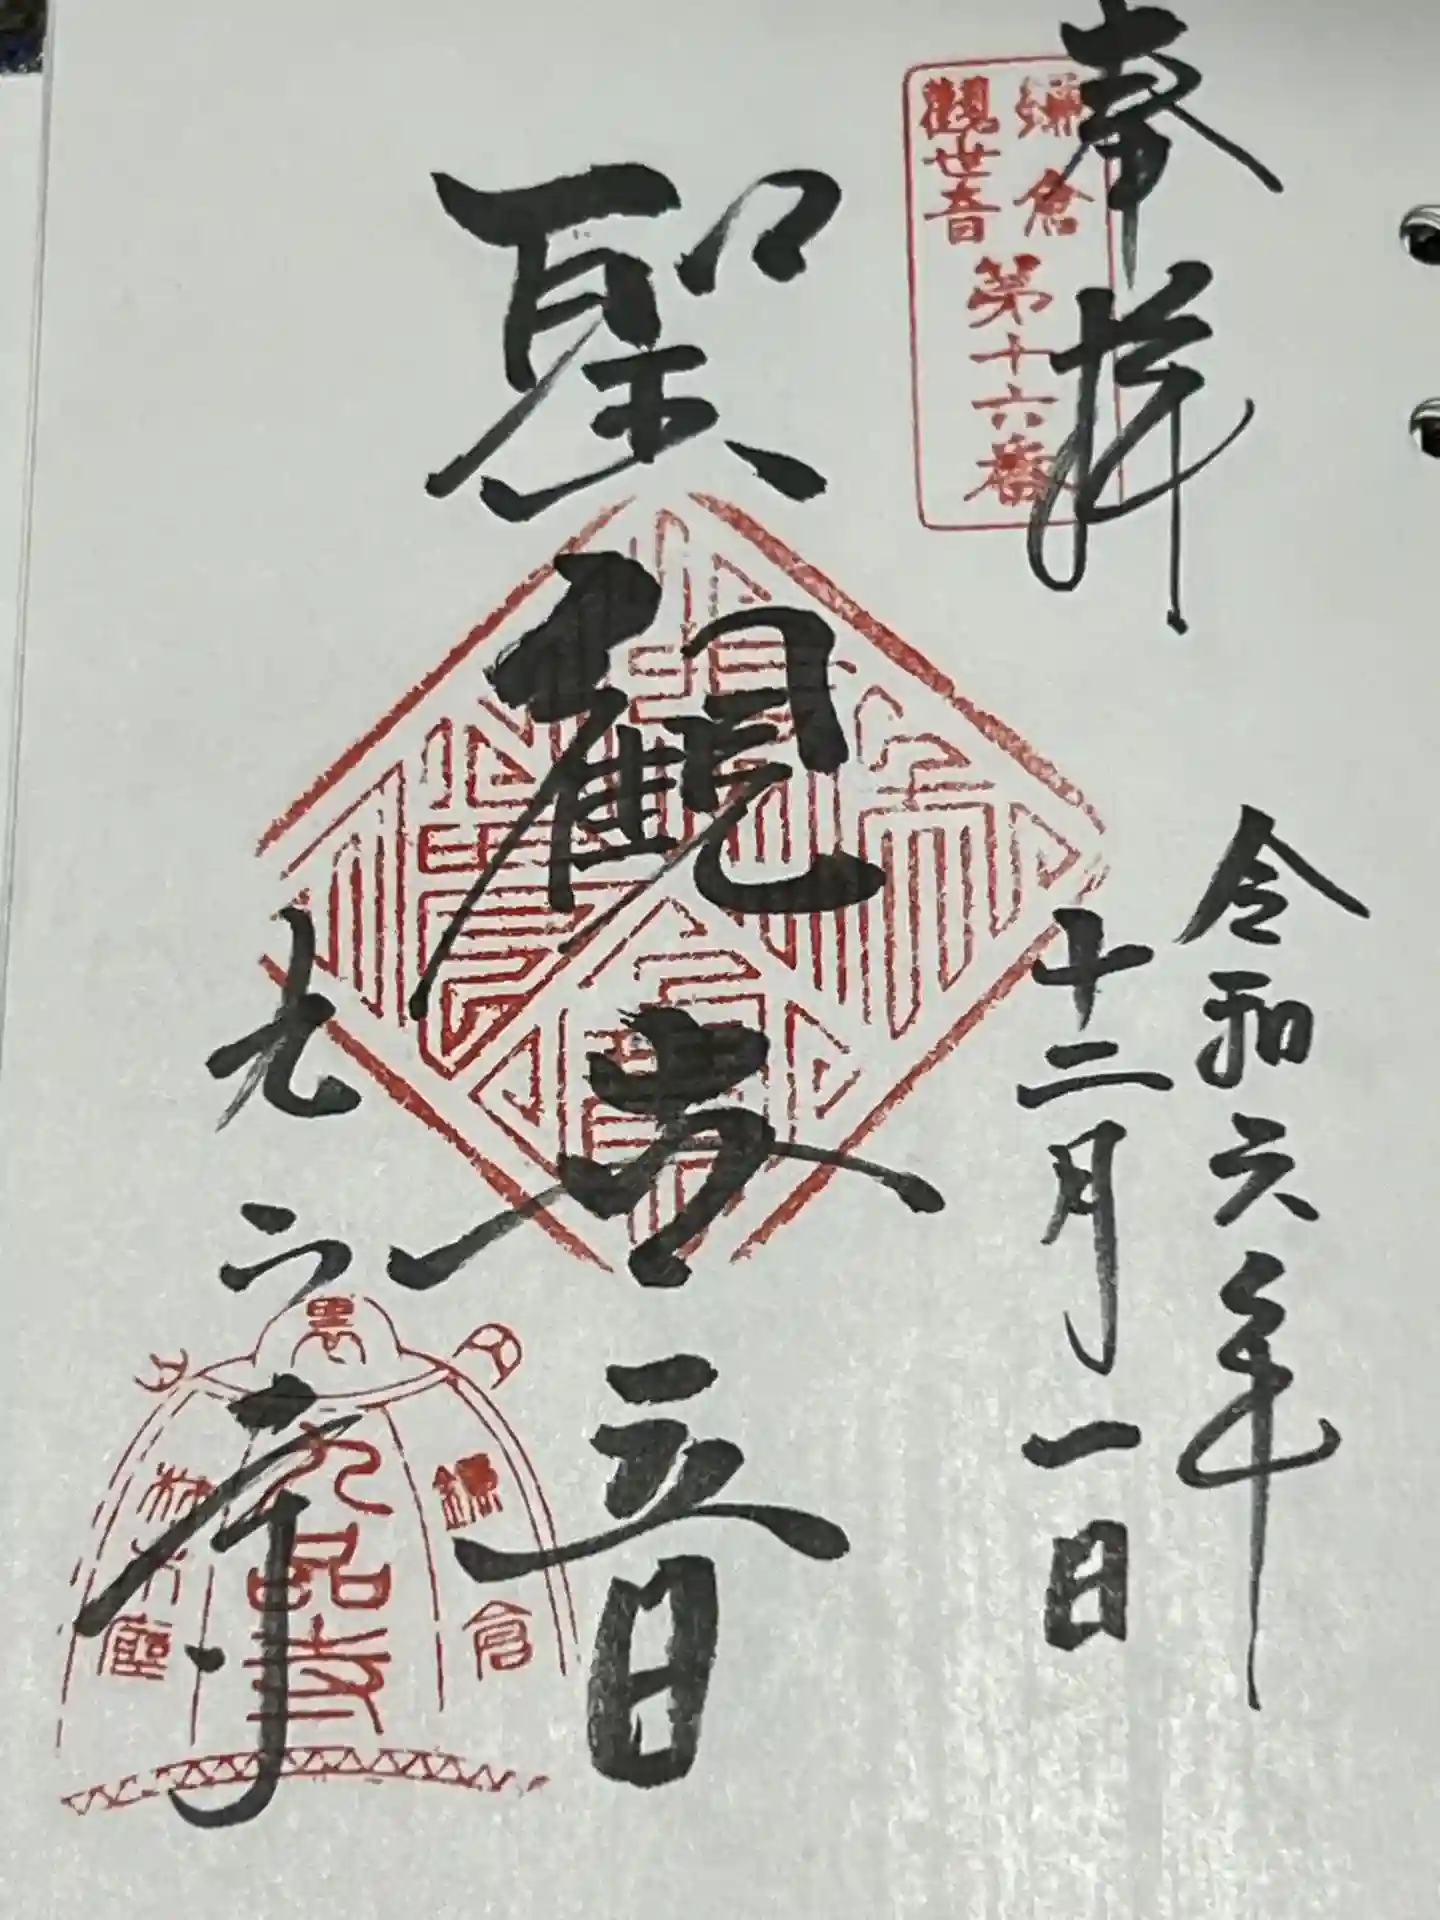 奉拝
鎌倉
觀世音
第十六番
令和六年
十二月一日
聖観世音
九品寺
鎌倉
九品寺
材木座